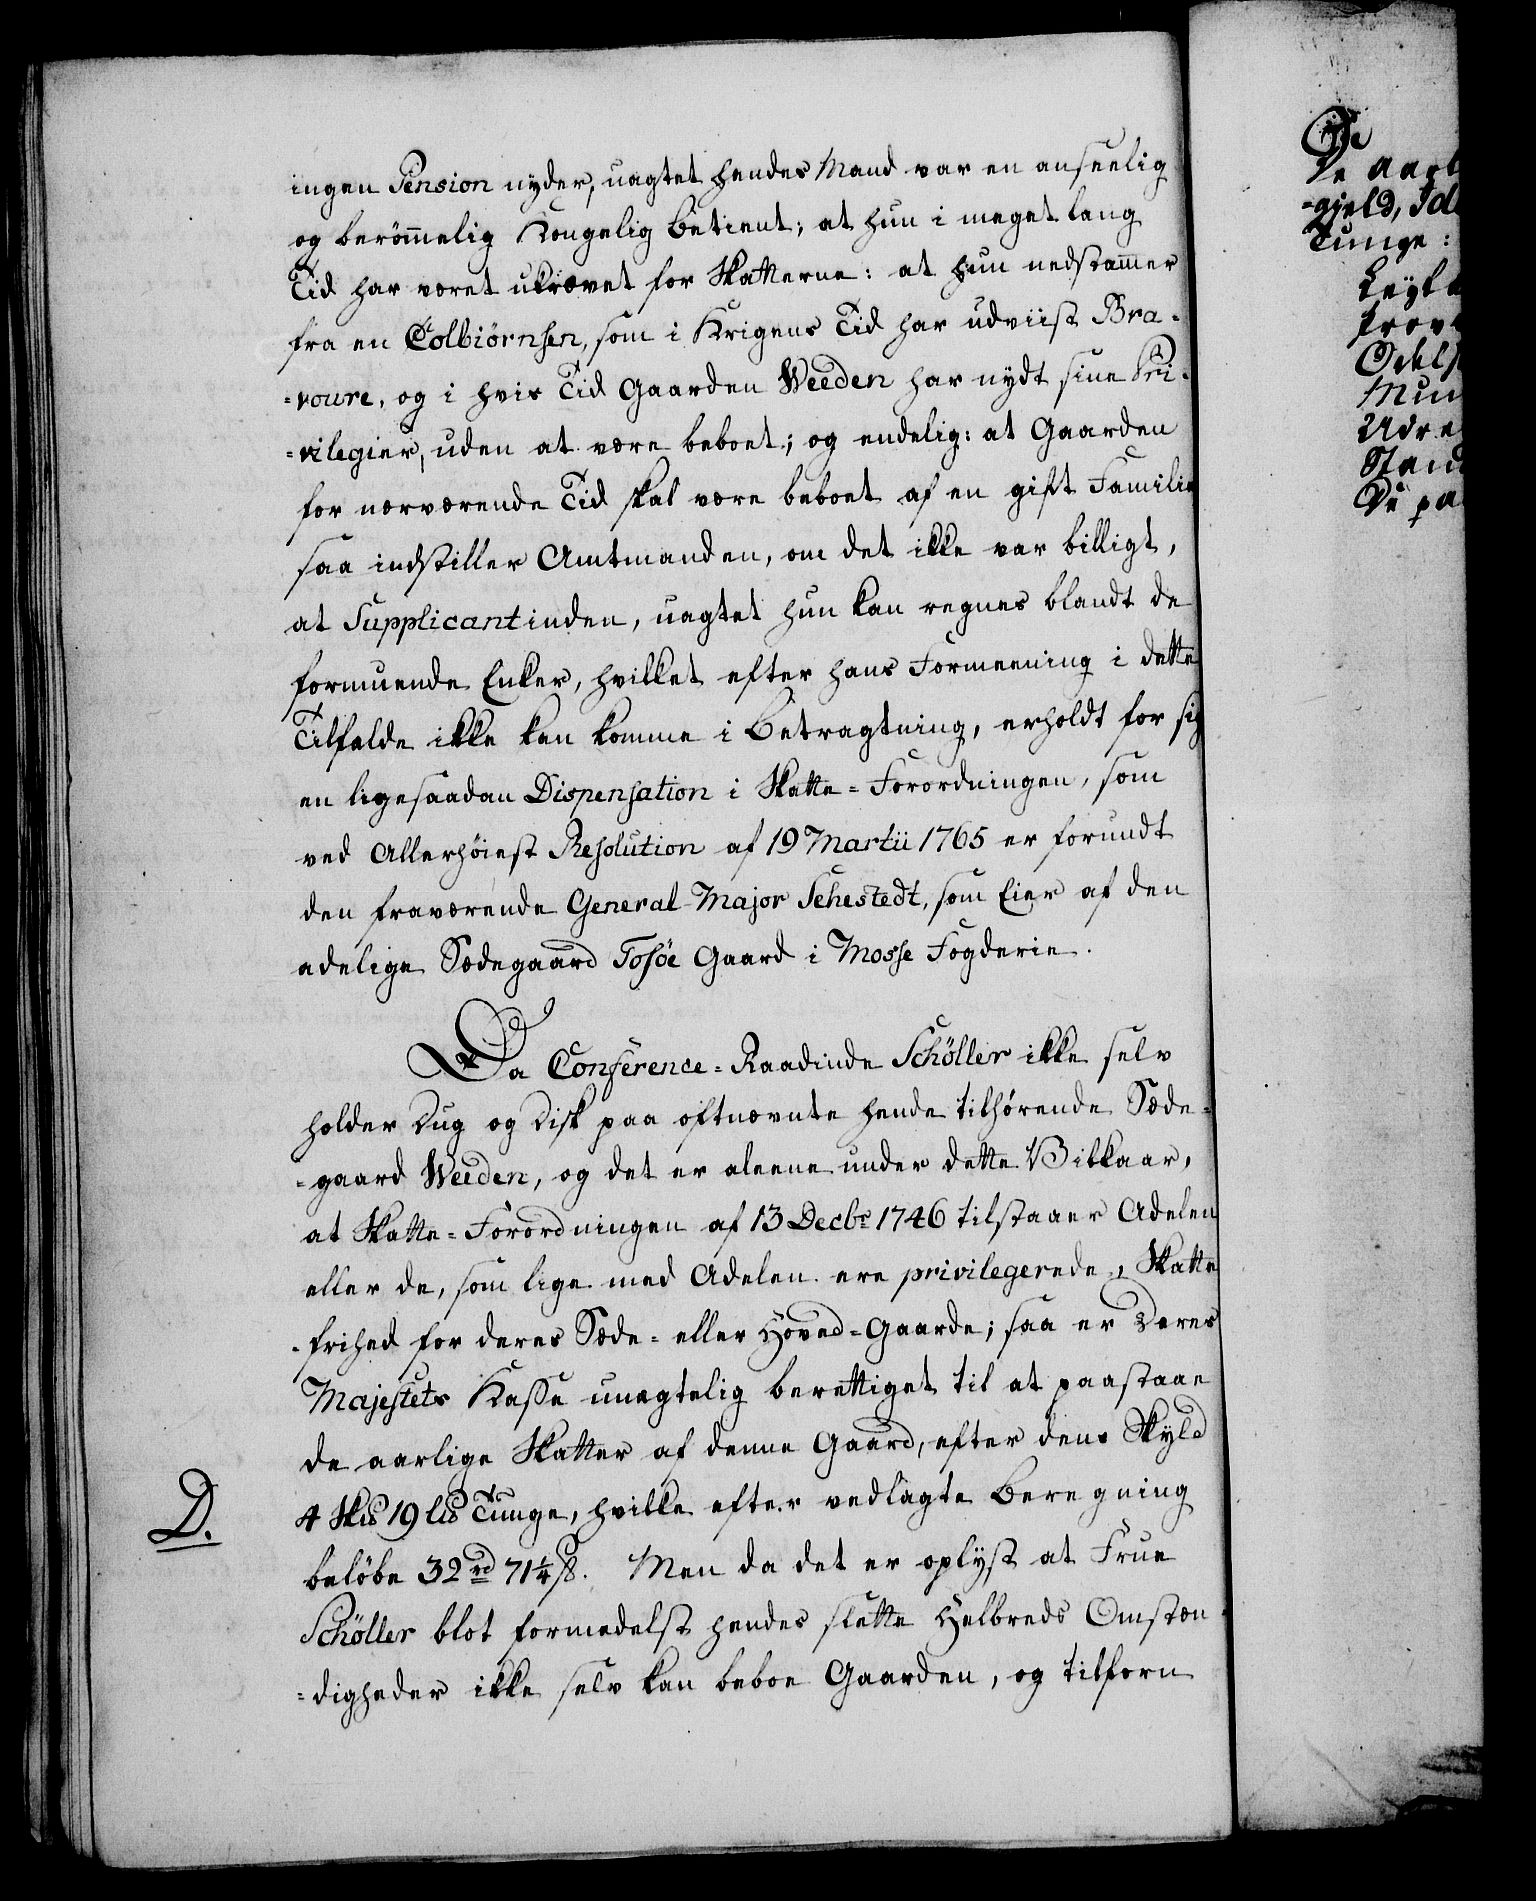 ingen Pension nyder, uagtet hendes Mand var en anseelig
og berømmelig Kongelig Betient; at hun i meget lang
Tid har været ukrævet for Skatterne: at hun nedstammer
fra en Colbiörnsen, som i Krigens Tid har udviist Bra-
=voure, og i hvis Tid Gaarden Weeden har nydt sine Pri-
=vilegier, uden at være beboet; og endelig: at Gaarden
for nærværende Tid skal være beboet af en gift Familie
saa indstiller Amtmanden, om det ikke var billigt,
at Supplicantinden, uagtet hun kan regnes blandt de
formuende Enker, hvilket efter hans Formeening i dette
Tilfælde ikke kan komme i Betragtning, erholdt for sig
en ligesaadan Dispensation i Skatte=Forordningen, som
ved Allerhøiest Resolution af 19 Martii 1765 er forundt
den fraværende General-Major Sehestedt, som Eier af den
adelige Sædegaard Tosöe Gaard i Mosse Fogderie.
Da Conference=Raadinde Schöller ikke selv
holder Dug og Disk paa oftnævnte hende tilhørende Sæde=
=gaard Weeden, og det er aleene under dette Vilkaar,
at Skatte=Forordningen af 13 Decbr 1746 tilstaaer Adelen
eller de, som lige med Adelen ere privilegerede, Skatte
=frihed for deres Sæde= eller Hoved=Gaarde; saa er Deres
Majestets Kasse unægtelig berettiget til at paastaae
de aarlige Skatter af denne Gaard, efter dens Skyld
4 Sk℔ 19 L℔ Tunge, hvilke efter vedlagte Beregning
D.
beløbe 32 rd 71¼ ß. Men da det er oplyst at Frue
Schöller blot formedelst hendes slette Helbreds Omstæn-
=digheder ikke selv kan beboe Gaarden, og tilforn
De aarl
=gield, Id
Tunge:
Odels
Stand
De pa